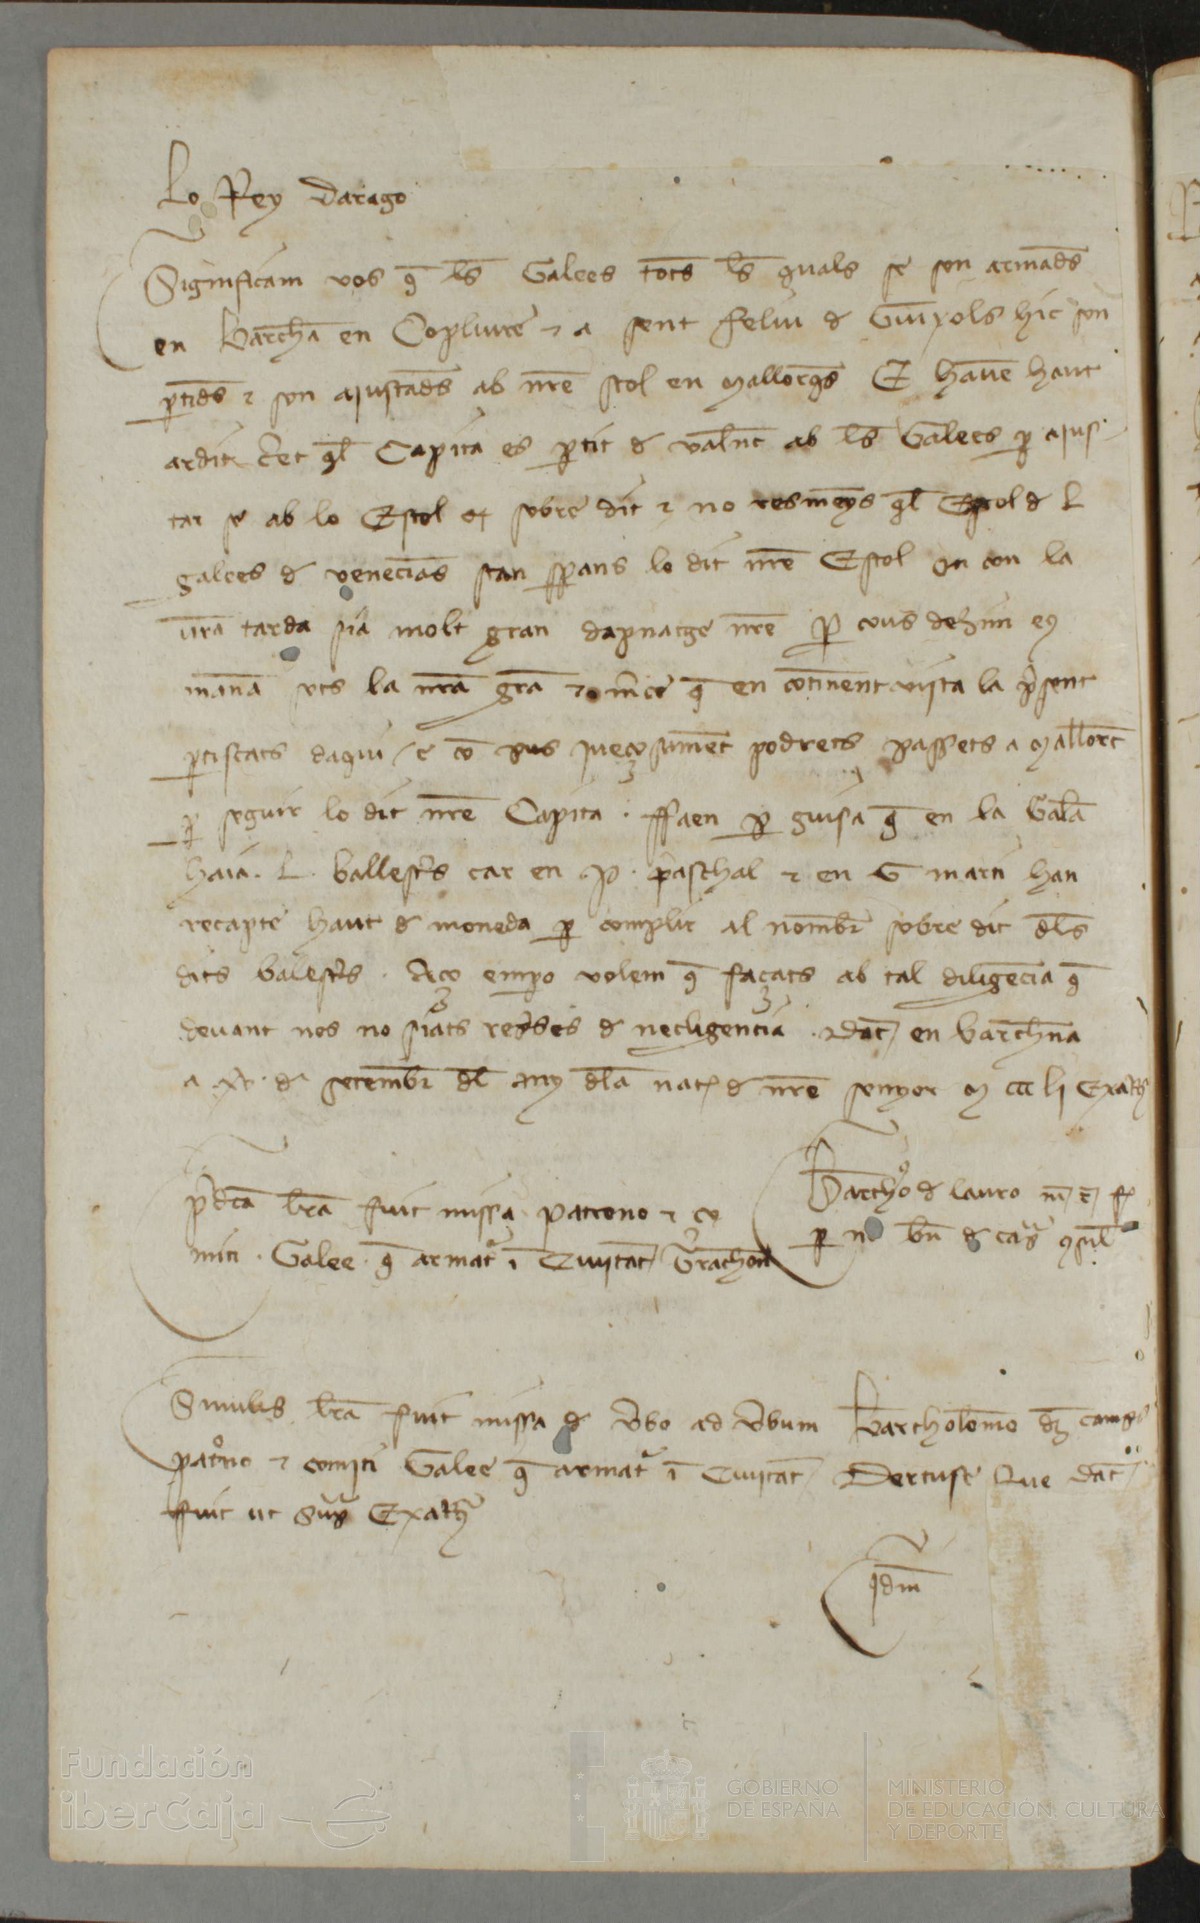 Lo Rey Darago
Significam vos q̄ les Galees totes les quals se son armades
en Barchā en Copliure ⁊ a sent feliu d Guixols hic son
p̄tides ⁊ son ajustades ab nr̄e stol en Mallorq̄s E havē haut
ardit cert q̄l Capita es p̄tit d valn̄c ab les Galees p̄ ajus
tar se ab lo Estol sobre dit ⁊ no resmeys q̄l Estol d L
galees d venecians stan sp̄ans lo dit nr̄e Estol on con la
vr̄a tarda sia molt gran dapnatge nr̄e p̄ co us dehim e
manā sots la nr̄a grā ⁊ mr̄ce q̄ en cōtinent vista la p̄sent
p̄tiscats daqui e cō pus podrets passets a Mallorc̄
p̄ seguir lo dit nr̄e Capita ffaen p̄ guisa q̄ en la Galā
haia . L . ballest̄s car en .P. paschal ⁊ en G marti han
recapte haut d moneda p̄ complir al nombr̄ sobre dit dels
dits balest̄s . Aço empo volem q̄ façats ab tal diligēcia q̄
devant nos no siats represes d necligencia . dat̄ en barchn̄a
a xv d setembr̄ del any dela nat̄ d nr̄e senyor M CCC Lj Exat̄s
p̄dc̄a lr̄a fuit missa patrono ⁊ co
miti . Galee q̄ armat̄ ī Civitat̄ Trachon̄
Barth̊o d lauro
p̄
Similis lr̄a fuit missa d v̄bo ad v̄bum Bartholomeo
pat̊no ⁊ comiti Galee q̄ armat̄ ī Civitat̄ Dertuse Que dat̄
fuit ut sup̄ Exat̄
jdm̄
Fundación
iberCaja
GOBIERNO
DE ESPAÑA
MINISTERIO
DE EDUCACIÓN, CULTURA
Y DEPORTE